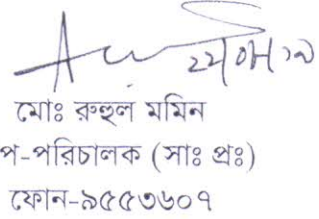 মোঃ রুহুল মমিন
প-পরিচালক (সাঃ প্রঃ)
ফোন-৯৫৫৩৬০৭